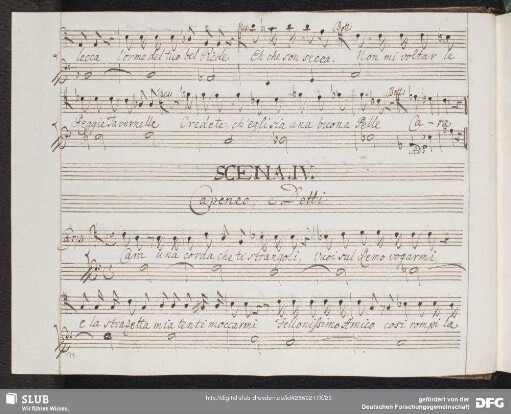 lecca l'orme del tuo bel Piede Eh che son secca. Non mi voltar le
Reggie Tavernelle Credete, ch'egli sia una buona Pelle Ca-ra
Ad:º
SCENA. IV.
e Detti
Cara una corda che ti strangoli, vuoi sul Remo vogarmi
e la strazetta mia tenti moccarmi fellonissimo Amico così rompi la
SLUB
Wir führen Wissen.
http://digital.slub-dresden.de/id426602171/29
gefördert von der
Deutschen Forschungsgemeinschaft
DFG